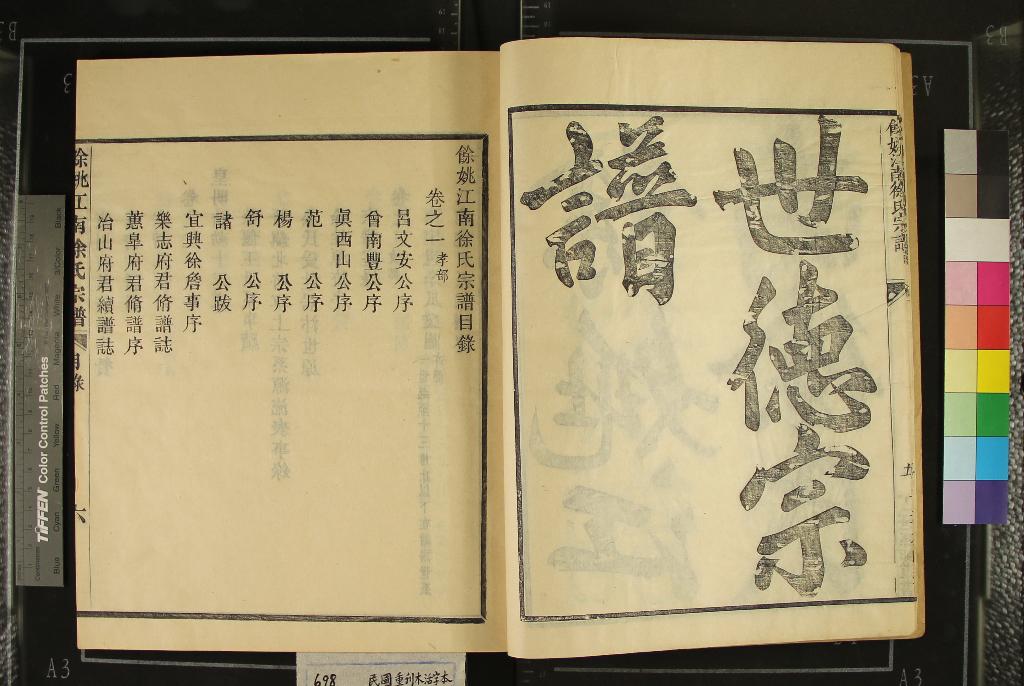 世德宗
譜
餘姚江南徐氏宗譜
餘姚江南徐氏宗譜目錄
卷之一 孝部
呂文安公序
曾南豐公序
眞西山公序
范 公序
楊 公序
舒 公序
諸 公跋
宜興徐詹事序
樂志府君脩譜誌
蕙臯府君脩譜序
冶山府君續譜誌
餘姚江南徐氏宗譜 目錄 六
TIFFEN Color Control Patches
Blue Cyan Green Yellow Red Magenta Black
698 民國重刊木活字本
A3
A3
A3
B3
B3